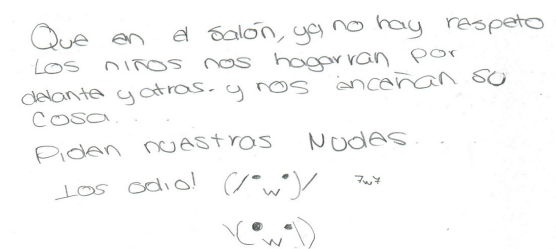 Que en el Salón, ya no hay respeto
Los niños nos hagarran por
delante y atras. y nos enceñan su
cosa...
Piden nuestras Nudes...
Los odio! (/°w°)/ 7w7
\(°w°\)